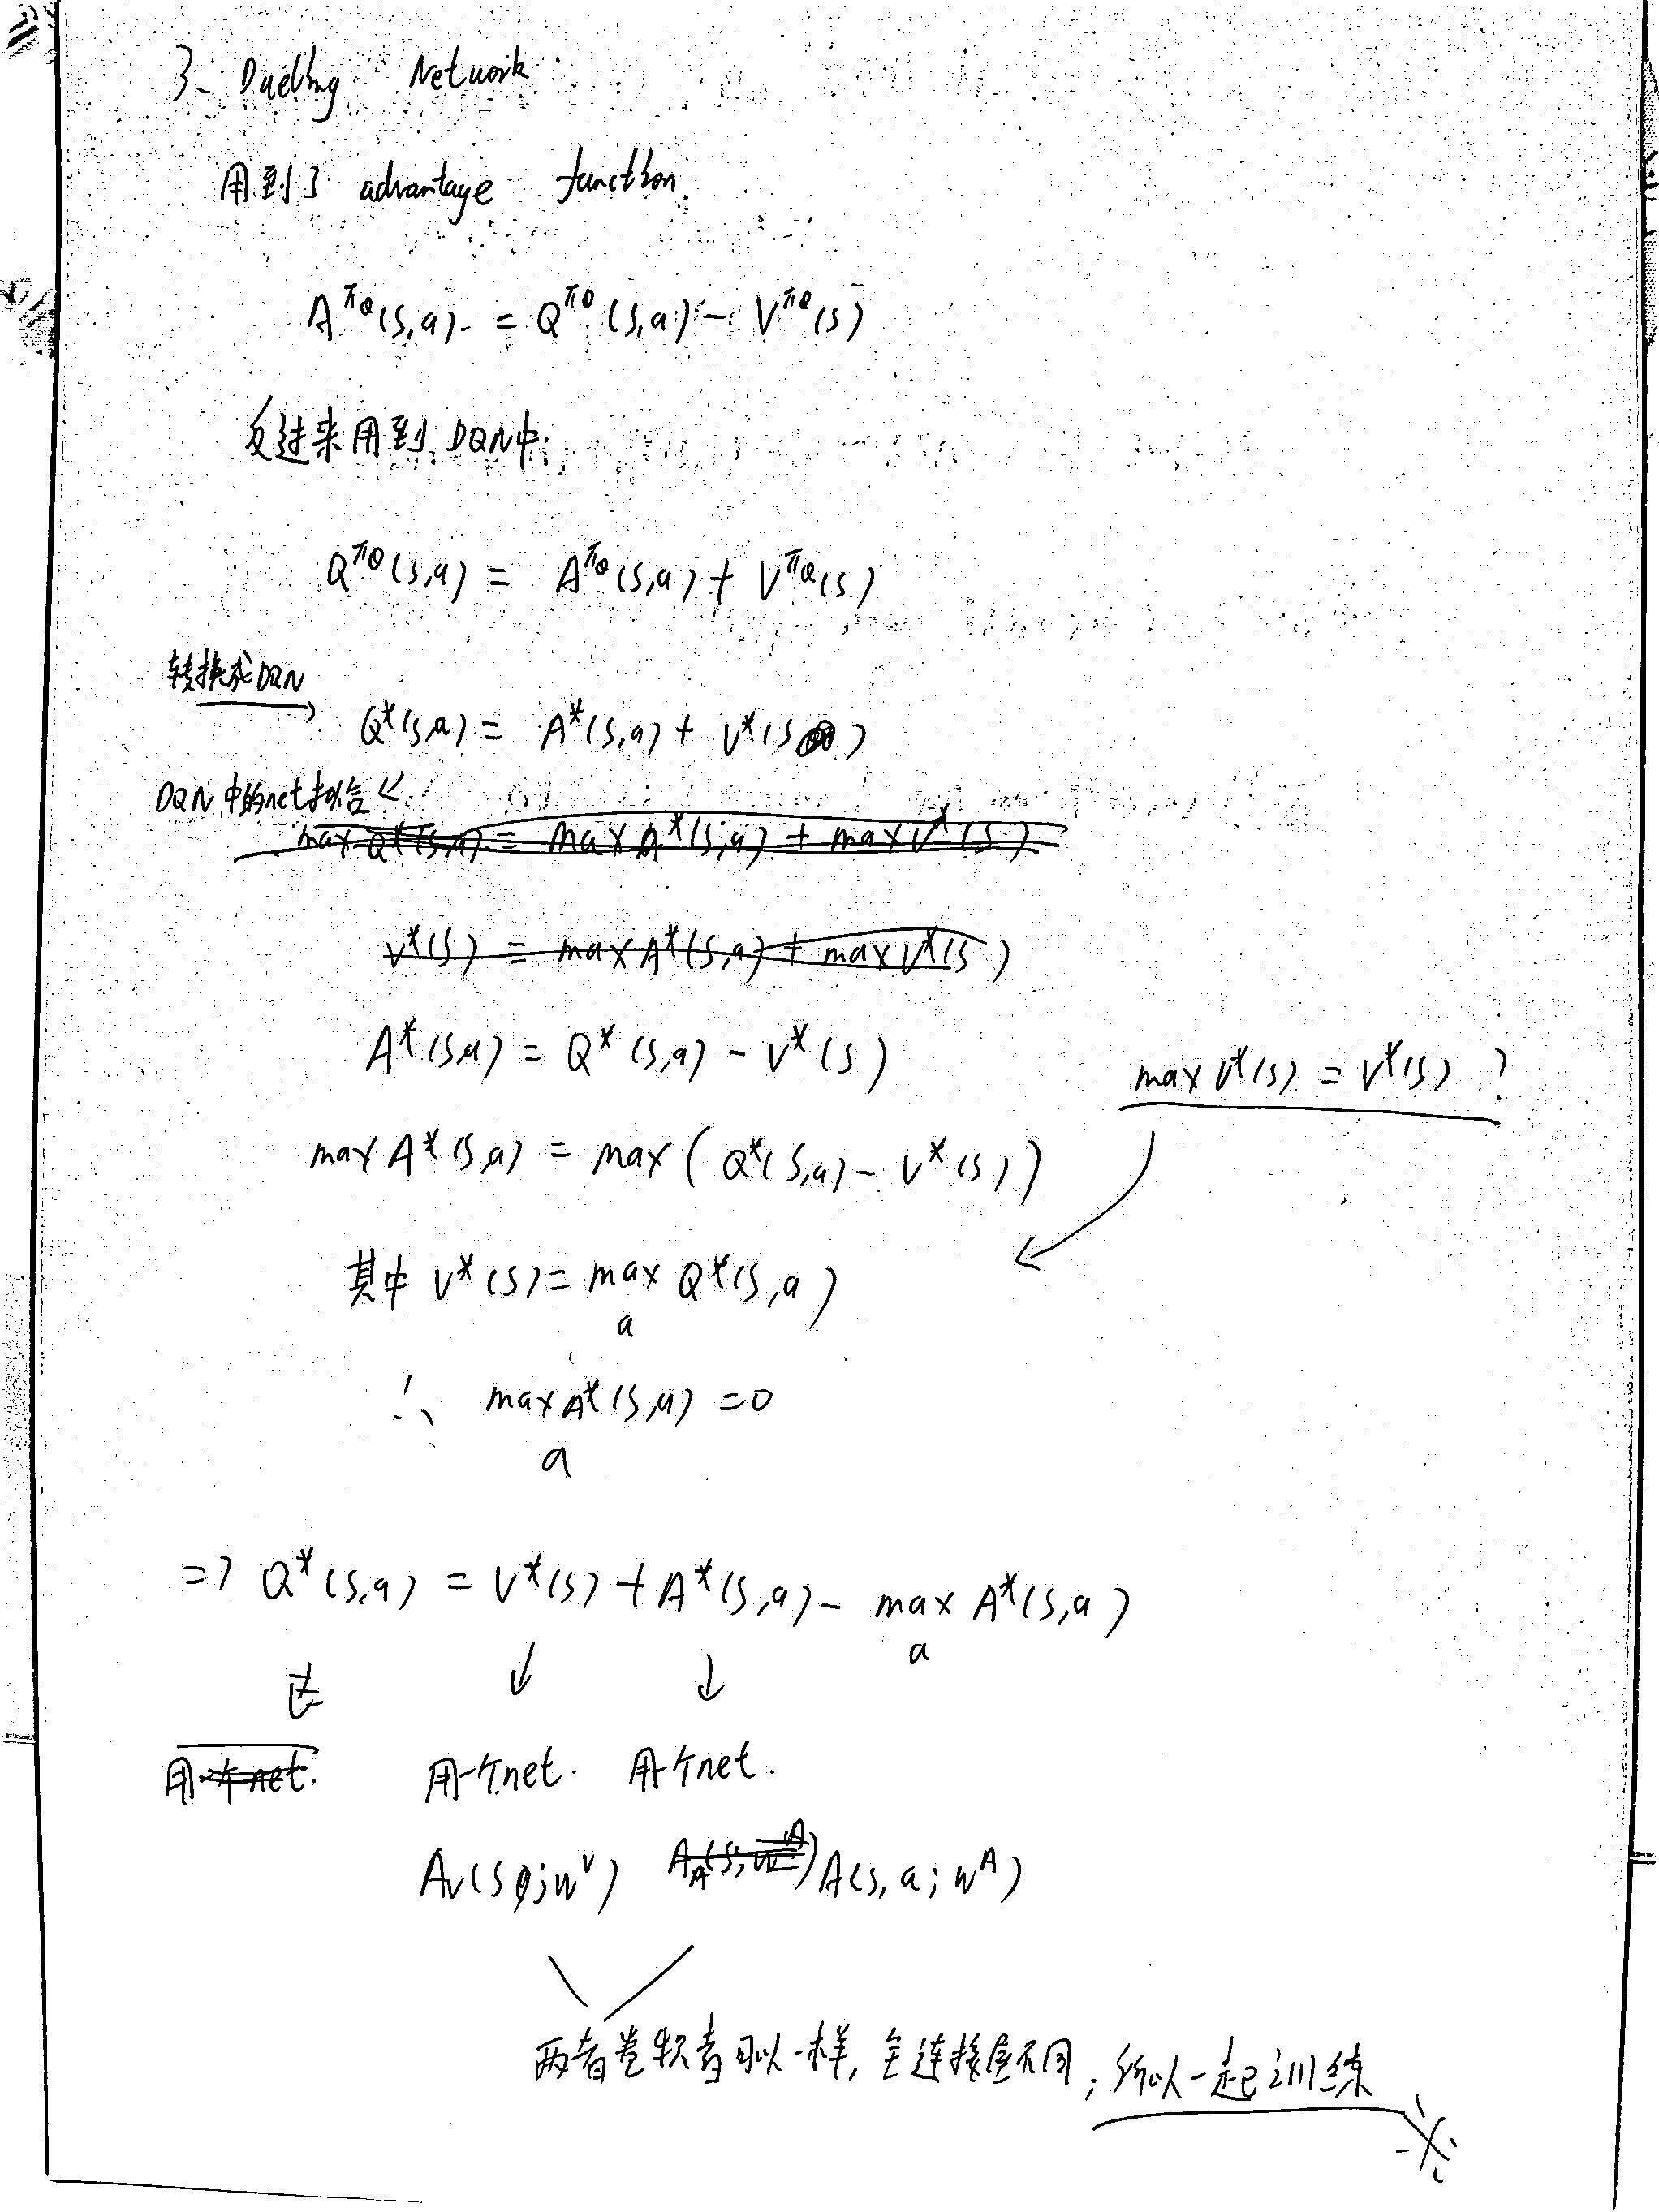 3. Duelling Network
用到了 advantage function.
A^{πθ}(s,a) = Q^{πθ}(s,a) - V^{πθ}(s)
反过来用到 DQN中.
Q^{πθ}(s,a) = A^{πθ}(s,a) + V^{πθ}(s)
转换成DQN
Q*(s,a) = A*(s,a) + V*(s)
DQN中的net拟合
max Q*(s,a) = max A*(s,a) + max V*(s)
V*(s) = max A*(s,a) + max V*(s)
A*(s,a) = Q*(s,a) - V*(s)
max V*(s) = V*(s) ?
max A*(s,a) = max ( Q*(s,a) - V*(s))
其中 V*(s) = max Q*(s,a)
a
∴ max A*(s,a) = 0
a
=> Q*(s,a) = V*(s) + A*(s,a) - max A*(s,a)
a
用个net. 用一个net. 用个net.
A_V(s;w^V) A_A(s;w^A) A(s,a;w^A)
两者卷积都可以一样, 全连接层不同; 所以一起训练